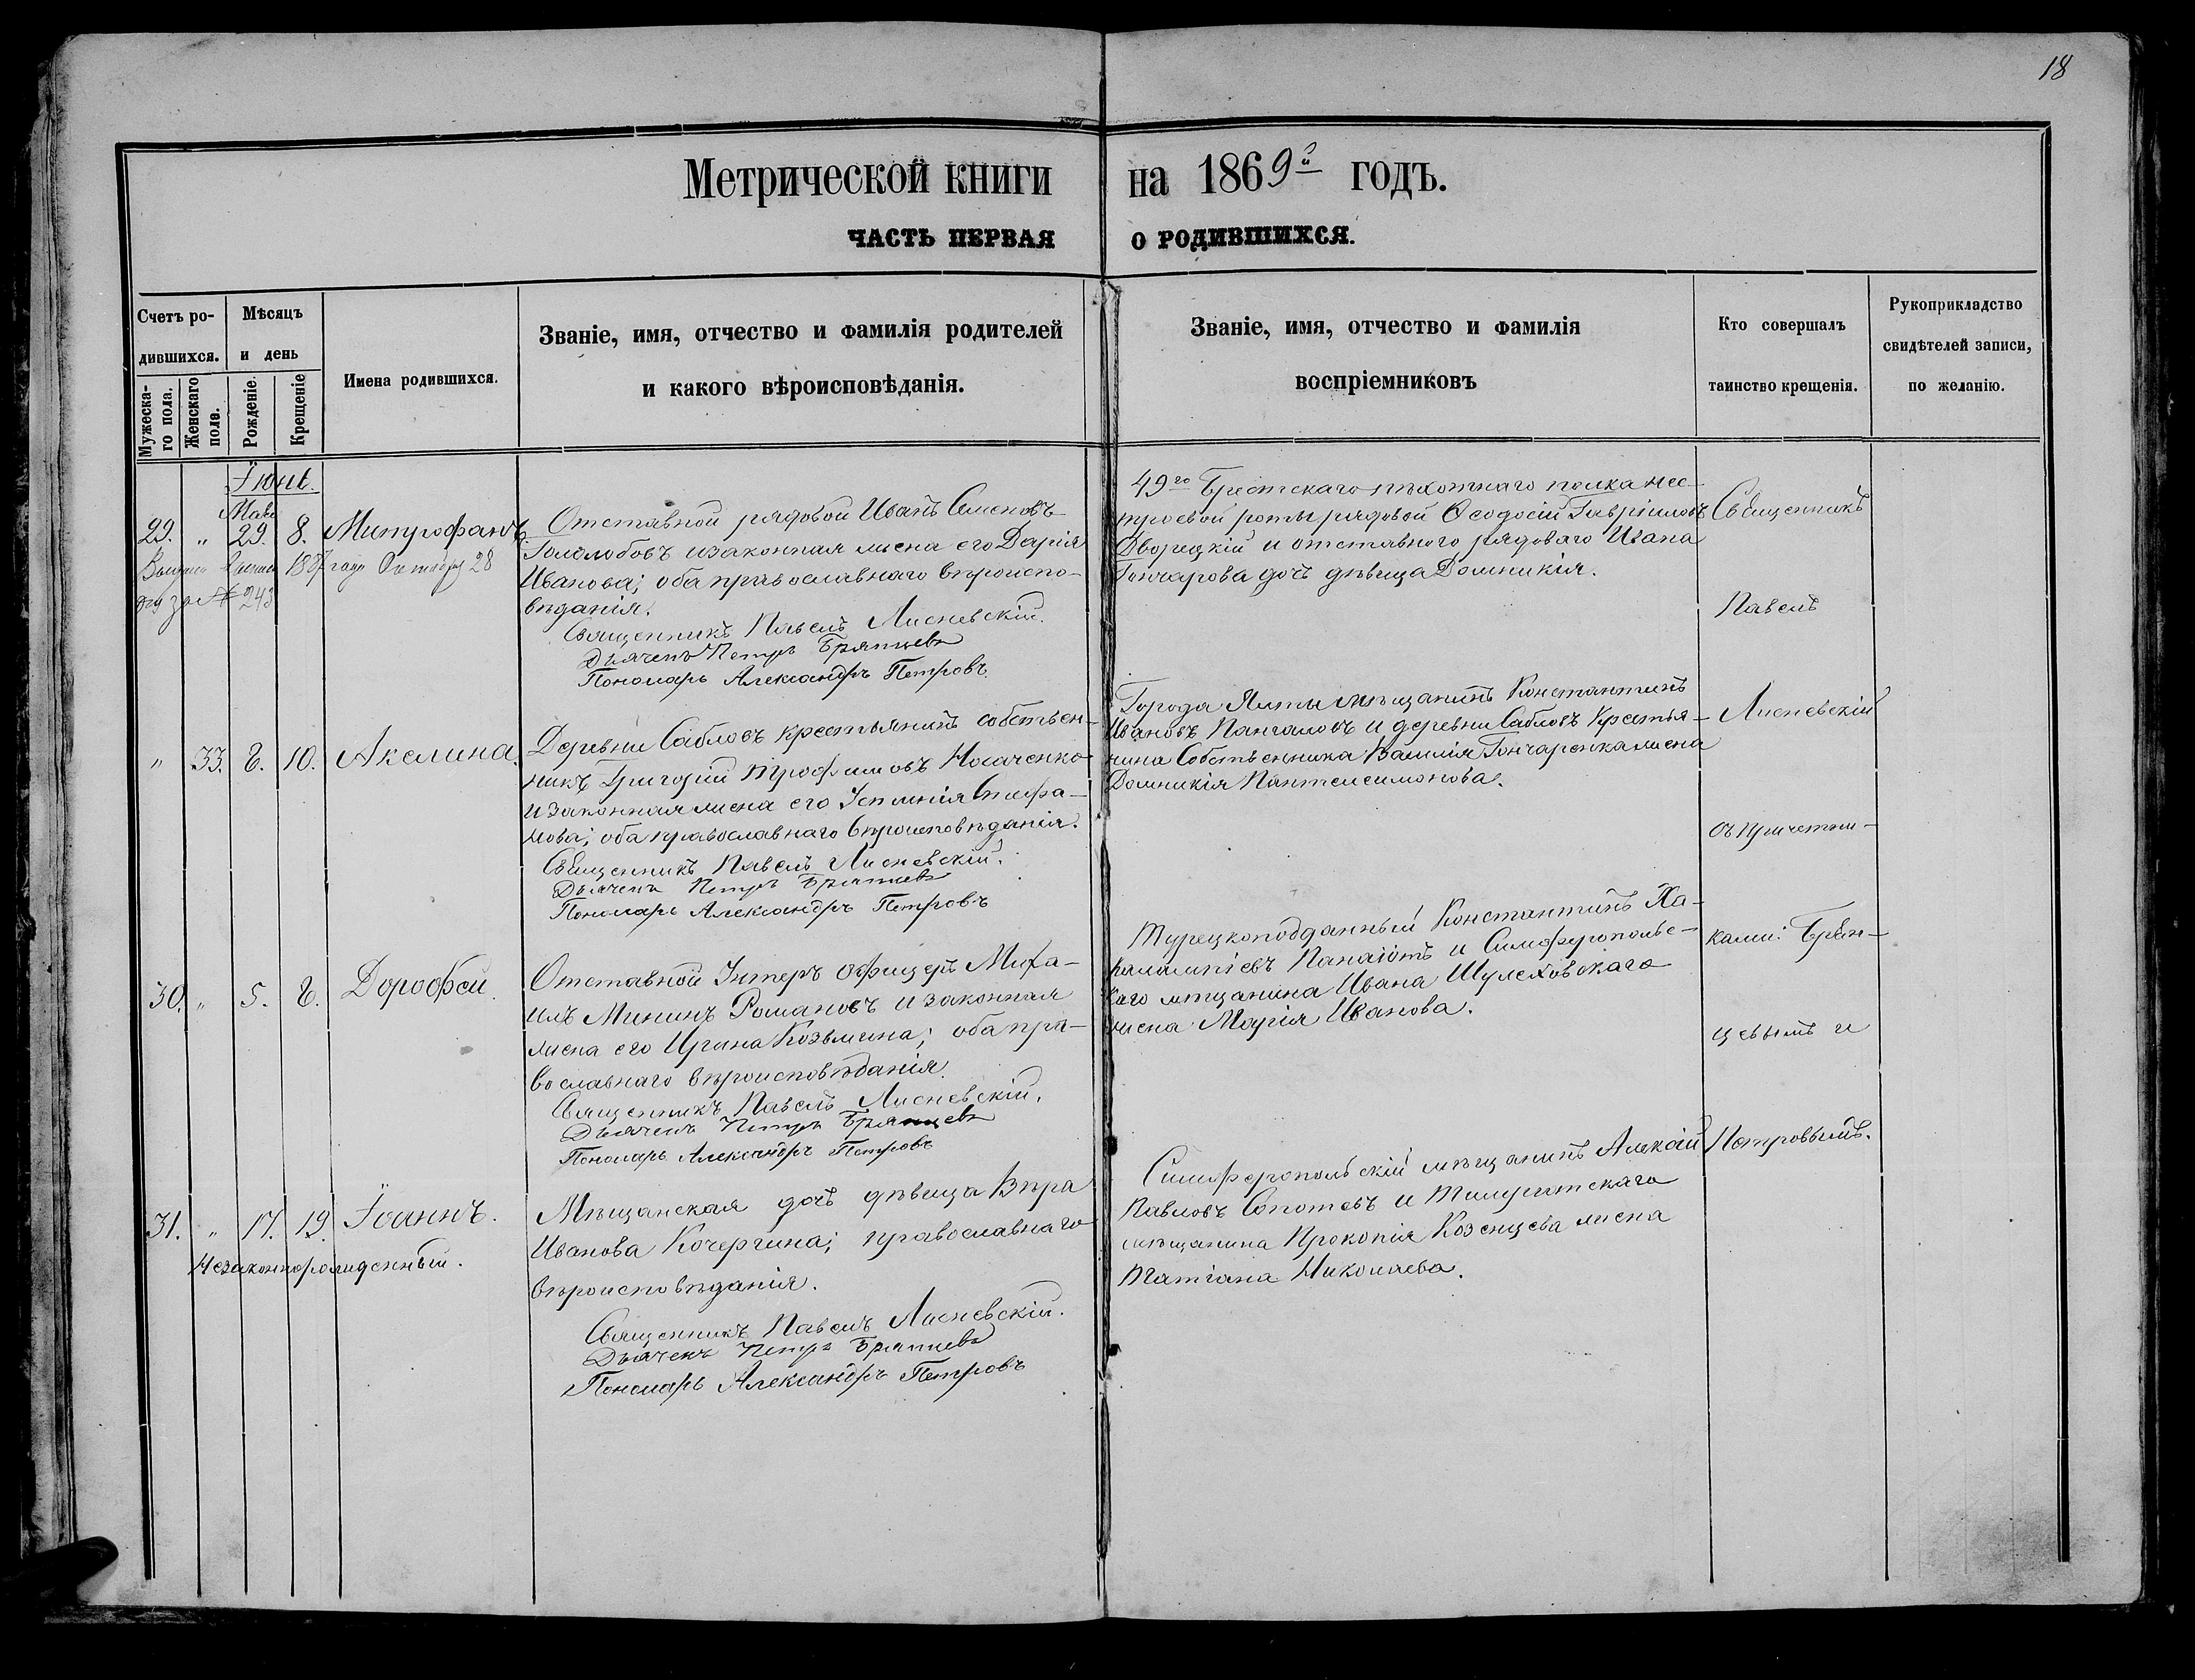 18
Метрической книги на 1869й годъ.
ЧАСТЬ ПЕРВАЯ О РОДИВШИХСЯ.
Счетъ ро-
дившихся.
Мужеска-
го пола.
Женскаго
пола.
Мѣсяцъ
и день
Рожденіе.
Крещеніе
Имена родившихся.
Званіе, имя, отчество и фамилія родителей
и какого вѣроисповѣданія.
Званіе, имя, отчество и фамилія
воспріемниковъ
Кто совершалъ
таинство крещенія.
Рукоприкладство
свидѣтелей записи,
по желанію.
Іюнь.
Маія
29. „ 29. 8. Митрофанъ
188 года Октября 28
за № 243
Отставной рядовой Иванъ Семеновъ
Гололобовъ и законная жена его Дарія
Иванова; оба православнаго вѣроиспо-
вѣданія.
Священникъ Павелъ Лисневскій.
Дьячекъ Петръ Брянцевъ
Пономарь Александръ Петровъ.
49го Брестскаго пѣхотнаго полка нес-
троевой роты рядовой Ѳеодосій Гавріиловъ
Дворецкій и отставного рядоваго Ивана
Гончарова дочь дѣвица Домникія.
„ 33. 8. 10. Акелина.
Деревни Сабловъ крестьянинъ собствен-
никъ Григорій Трофимовъ Носаченко
и законная жена его
нова; оба православнаго вѣроисповѣданія.
Священникъ Павелъ Лисневскій.
Дьячекъ Петръ Брянцевъ
Пономарь Александръ Петровъ
Города Ялты мѣщанинъ Константинъ
Ивановъ Пангаловъ и деревни Сабловъ крестья-
нина Собственника Василія Гончаренка жена
Домникія Пантелеимонова.
30. „ 5. 8. Дорофей.
Отставной Унтеръ офицеръ Миха-
илъ Мининъ Романовъ и законная
жена его Ирина Козьмина; оба пра-
вославнаго вѣроисповѣданія.
Священникъ Павелъ Лисневскій.
Дьячекъ Петръ Брянцевъ
Пономарь Александръ Петровъ
Турецкоподданный Константинъ Ха-
ралампіевъ Панаіотъ и Симферопольс-
каго мѣщанина Ивана Шулеховскаго
жена Марія Иванова.
31. „ 17. 19. Іоаннъ.
Незаконнорожденный.
Мѣщанская дочь дѣвица Вѣра
Иванова Кочергина; православнаго
вѣроисповѣданія.
Священникъ Павелъ Лисневскій.
Дьячекъ Петръ Брянцевъ
Пономарь Александръ Петровъ
Симферопольскій мѣщанинъ Алексій
Павловъ Сопотовъ и
мѣщанина Прокопія Козенцева жена
Татіана Николаева.
Священникъ
Павелъ
Лисневскій
съ причетни-
ками: Брян-
цевымъ и
Петровымъ.